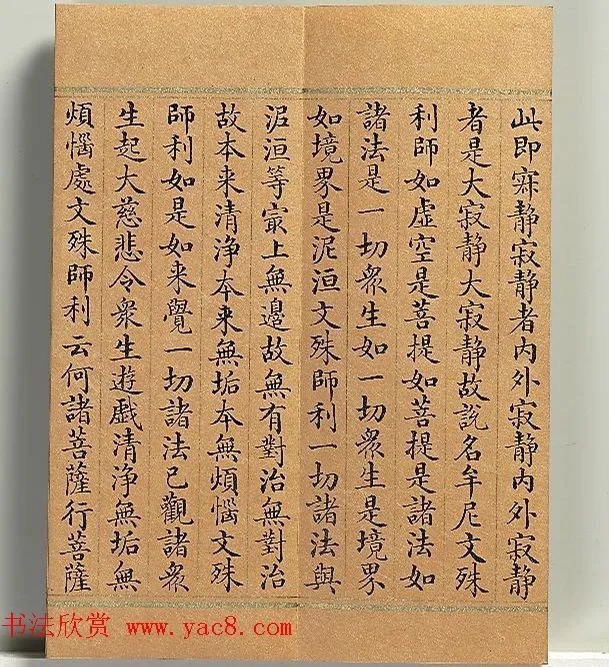 此即寐静寂静者内外寂静内外寂静
者是大寂静大寂静故說名牟尼文殊
利師如虚空是菩提如菩提是諸法如
諸法是一切衆生如一切衆生是境界
如境界是泥洹文殊師利一切諸法與
泥洹等寂上無邉故無有對治無對治
故本来清浄本来無垢本無煩惱文殊
師利如是如来覺一切諸法已觀諸衆
生起大慈悲令衆生遊戯清浄無垢無
煩惱處文殊師利云何諸菩薩行菩薩
书法欣赏 www.yac8.com